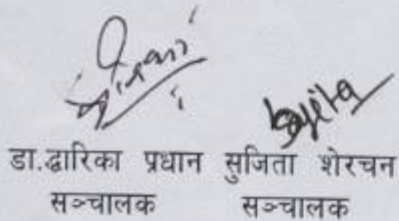 डा.द्वारिका प्रधान सुजिता शेरचन
सञ्चालक सञ्चालक